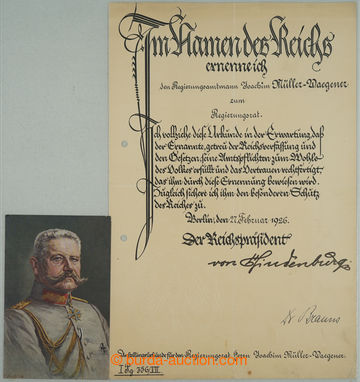 Im Namen des Reichs
ernenne ich
den Regierungsamtmann Joachim Müller-Waegener
zum
Regierungsrat.
Ich vollziehe diese Urkunde in der Erwartung, daß
der Ernannte, getreu der Reichsverfassung und
den Gesetzen, seine Amtspflichten zum Wohle
des Volkes erfüllt und das Vertrauen rechtfertigt,
das ihm durch diese Ernennung bewiesen wird.
Zugleich sichere ich ihm den besonderen Schutz
des Reiches zu.
Berlin, den 27. Februar 1926.
Der Reichspräsident
von Hindenburg
Dr Brauns
Bestallungsurkunde für den Regierungsrat Herrn Joachim Müller-Waegener.
burda-auction.com